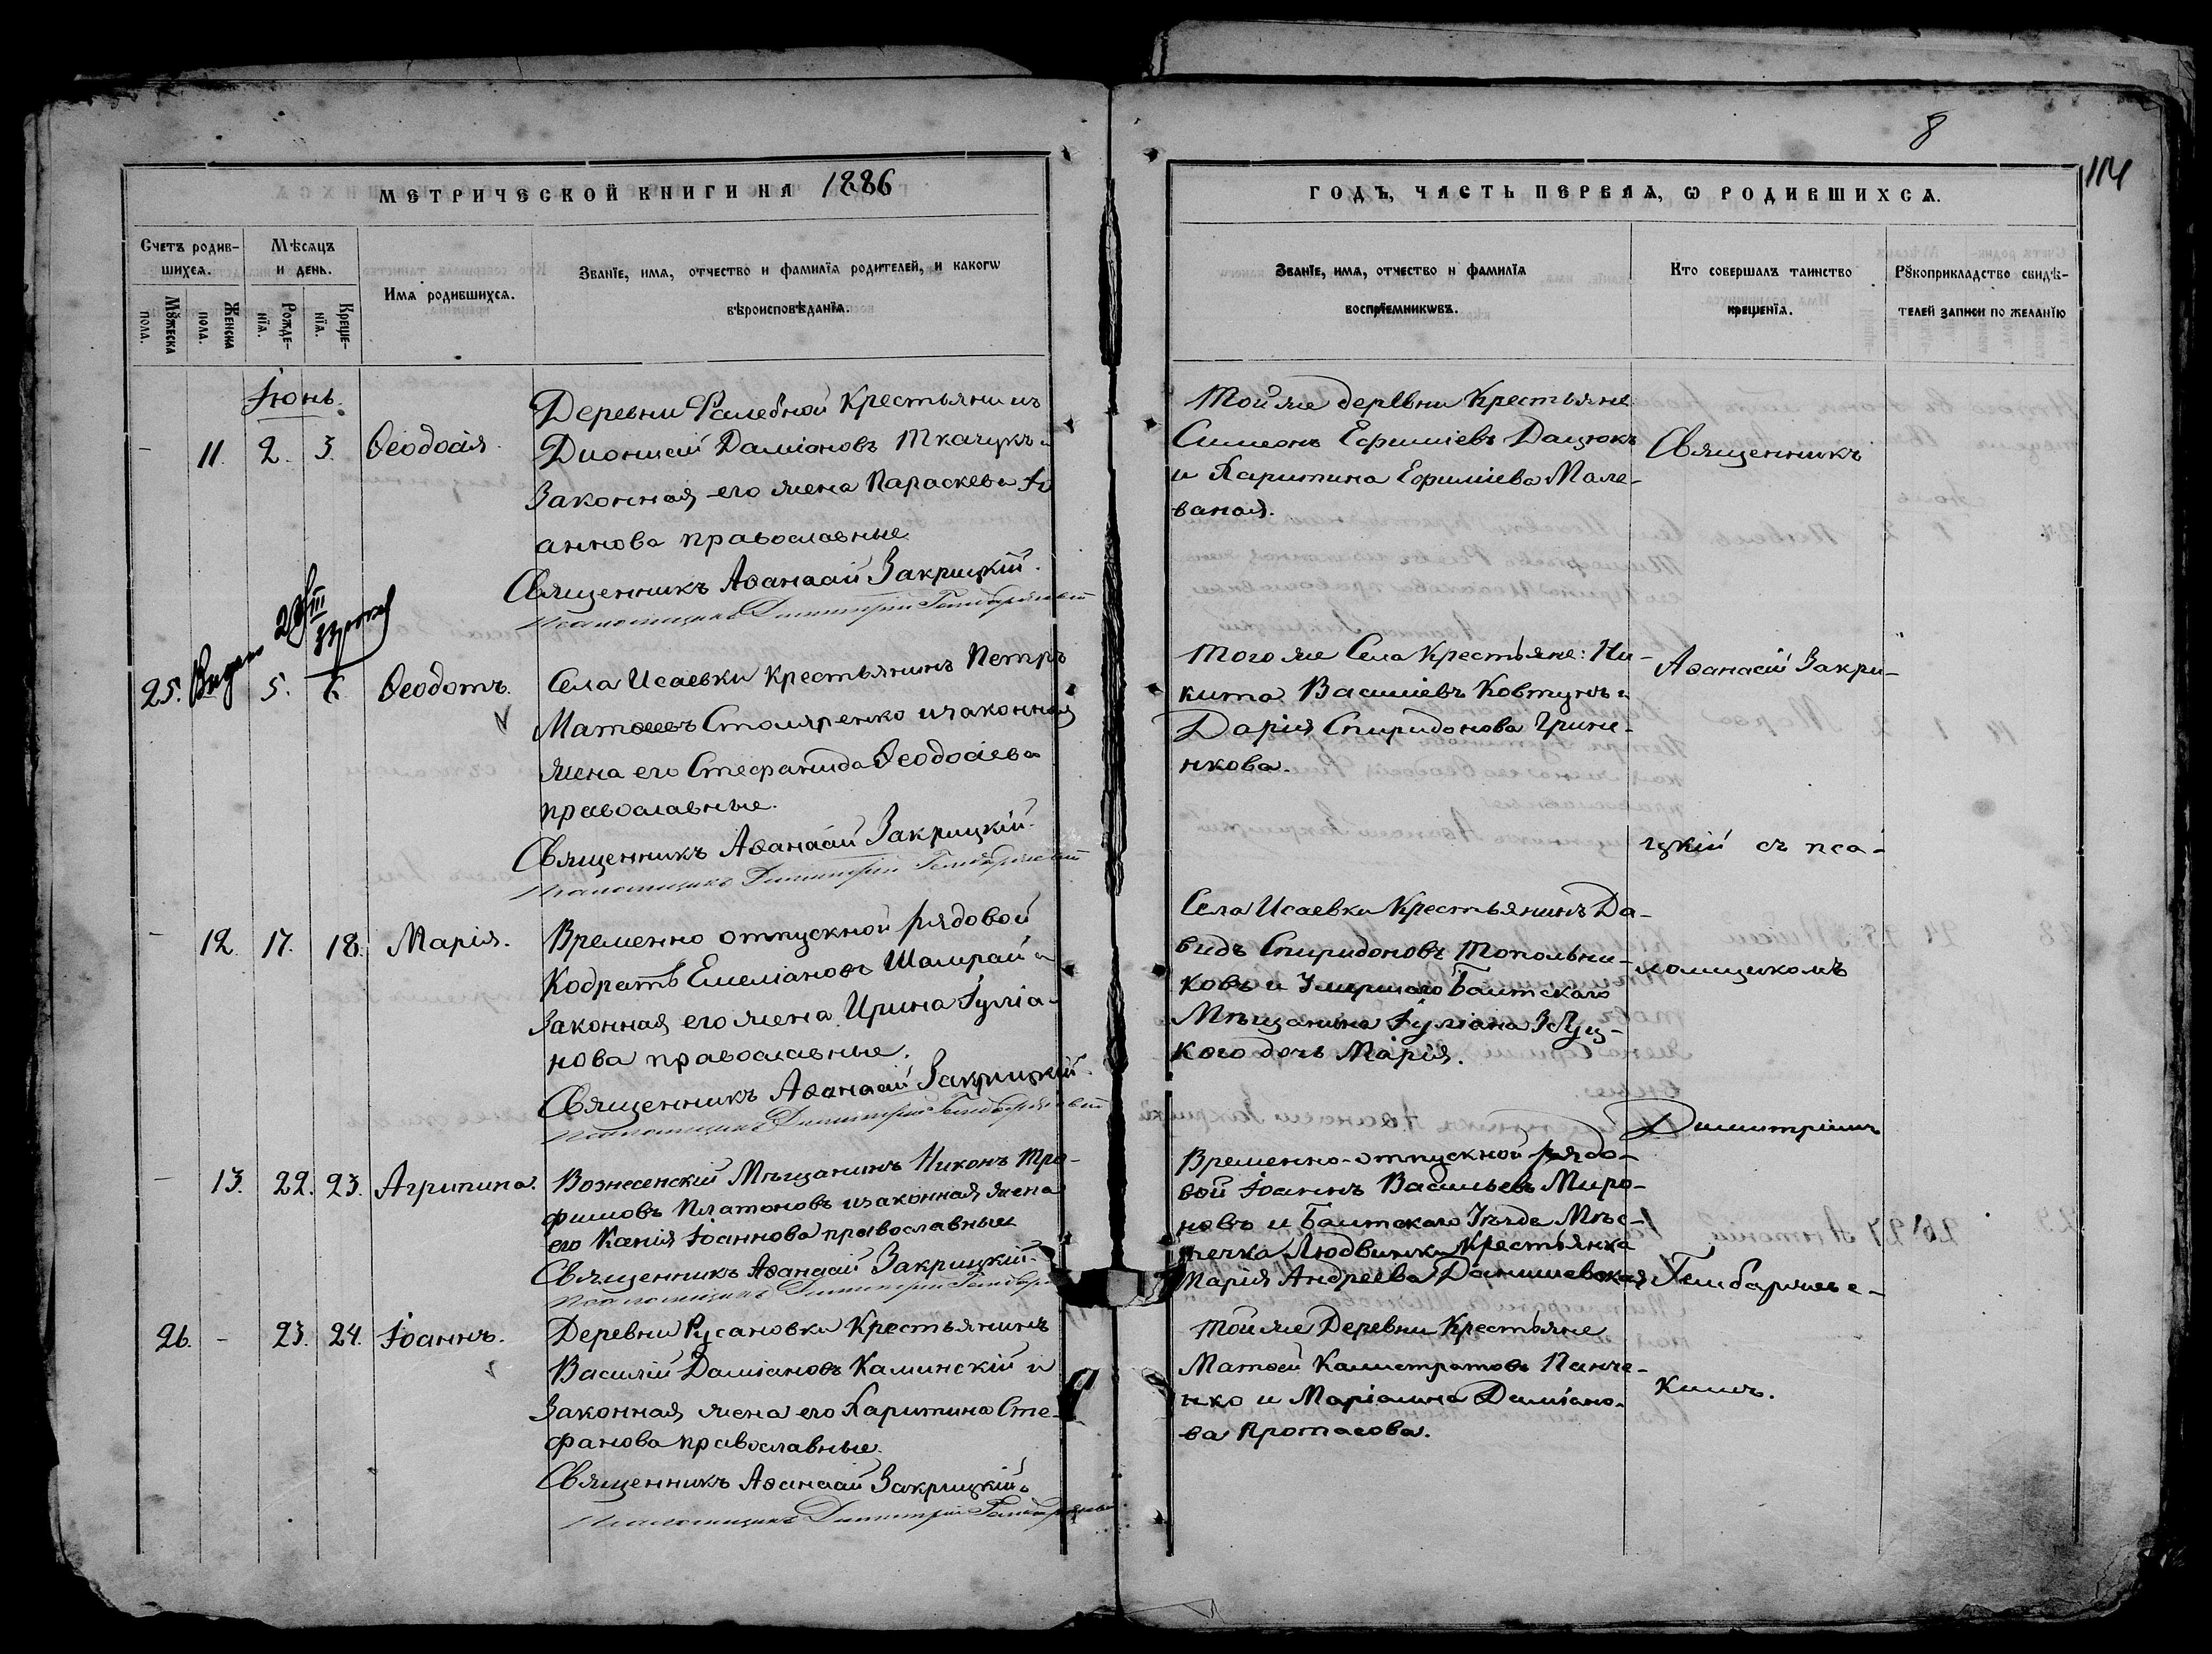 8
114
МЕТРИЧЕСКОЙ КНИГИ НА 1886
ГОДЪ, ЧАСТЬ ПЕРВАЯ, Ѡ РОДИВШИХСѦ.
Счетъ родив-
шихсѧ.
Мꙋжеска
пола.
Женска
пола.
Мѣсѧцъ
и день.
Рожде-
нїѧ.
Креще-
нїѧ.
Имѧ родившихсѧ.
Званїе, имѧ, отчество и фамилїѧ родителей, и какогѡ
вѣроисповѣданїѧ.
Званїе, имѧ, отчество и фамилїѧ
воспрїемникѡвъ.
Кто совершалъ таинство
крещенїѧ.
Рꙋкоприкладство свидѣ-
телей записи по желанїю
Іюнь.
- 11. 2. 3. Ѳеодосія.
Деревни Фалебной Крестьянинъ
Діонисій Даміановъ Ткачукъ и
Законная его жена Параскева Іо
аннова православные
Священникъ Аѳанасій Закрицкій.
Псаломщикъ Димитрій
Той же деревни Крестьяне
Симеонъ Ефиміевъ Дацюкъ
и Харитина Ефиміева Мале-
ваная.
25. 5. 6. Ѳеодотъ.
Села Исаевки Крестьянинъ Петръ
Матѳеевъ Столяренко и законная
жена его Стефанида Ѳеодосіева
православные.
Священникъ Аѳанасій Закрицкій.
Псаломщикъ Димитрій
Того же Села Крестьяне: Ни-
кита Василіевъ Ковтунъ и
Дарія Спиридонова Грине-
нкова.
- 12. 17. 18. Марія.
Временно отпускной рядовой
Кодратъ Емеліановъ Шамрай и
Законная его жена Ирина Іуліа-
нова православные.
Священникъ Аѳанасій Закрицкій.
Псаломщикъ Димитрій
Села Исаевки Крестьянинъ Да-
видъ Спиридоновъ Топольни-
ковъ и Умершаго Балтскаго
Мѣщанина Іуліана
кого дочь Марія.
- 13. 22. 23. Агрипина.
Вознесенскій Мѣщанинъ Никонъ Тро-
фимовъ Платоновъ и законная жена
его Ксенія Іоаннова православные
Священникъ Аѳанасій Закрицкій.
Псаломщикъ Димитрій
Временно-отпускной рядо-
вой Іоаннъ Васильевъ Миро-
новъ и Балтскаго Уѣзда Мѣс-
течка Людвинки Крестьянка
Марія Андреева Данишевская
26. - 23. 24. Іоаннъ.
Деревни Русановки Крестьянинъ
Василій Даміановъ Каминскій и
Законная жена его Харитина Сте-
фанова православные.
Священникъ Аѳанасій Закрицкій.
Псаломщикъ Димитрій
Той же Деревни Крестьяне
Матѳей Калистратовъ Панче-
нко и Маріамна Даміано-
ва Протасова.
Священникъ
Аѳанасій Закри-
цкій съ пса-
ломщикомъ
Димитріемъ
Гембаржев-
кимъ.